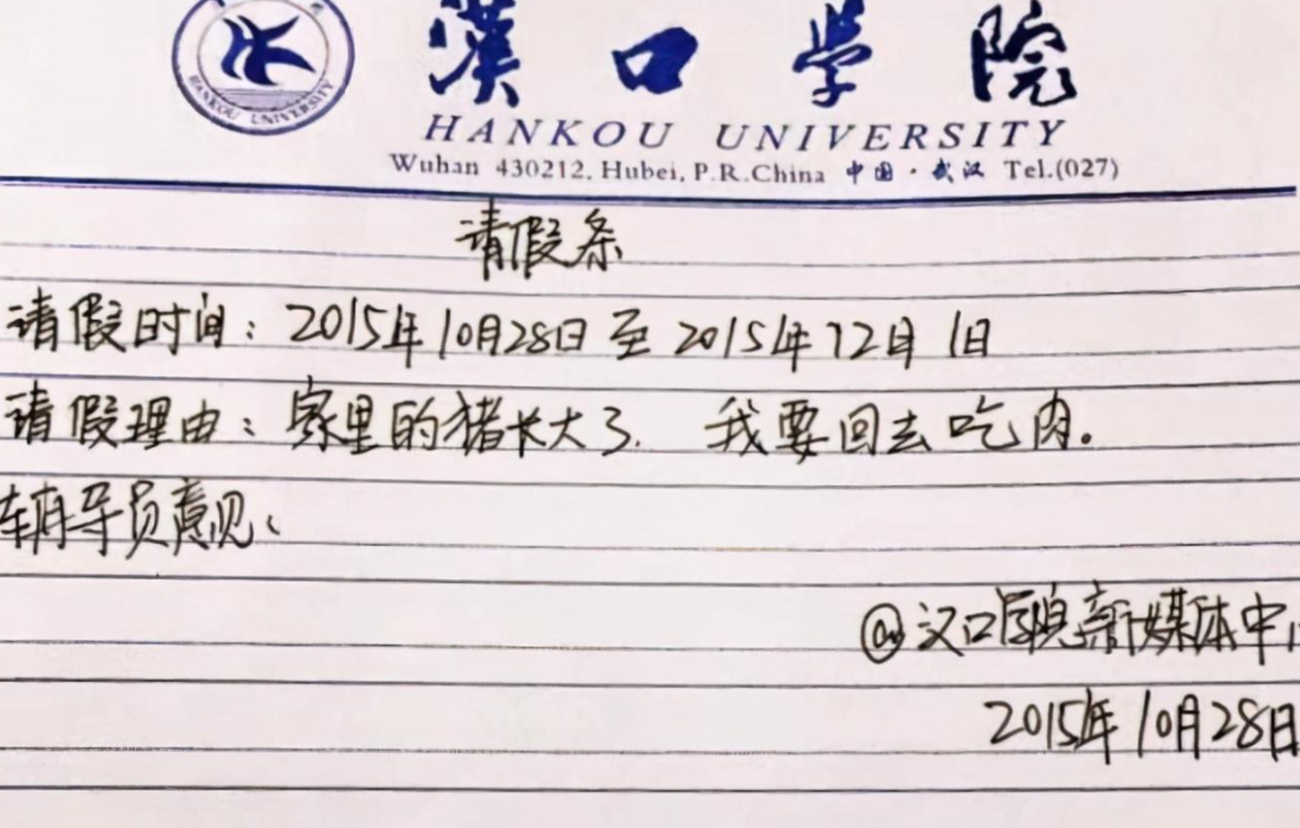 漢口學院
HANKOU UNIVERSITY
HANKOU UNIVERSITY
Wuhan 430212, Hubei, P.R.China 中国·武汉 Tel.(027)
请假条
请假时间：2015年10月28日至2015年12月1日
请假理由：家里的猪长大了. 我要回去吃肉.
辅导员意见：
@汉口学院新媒体中
2015年10月28日